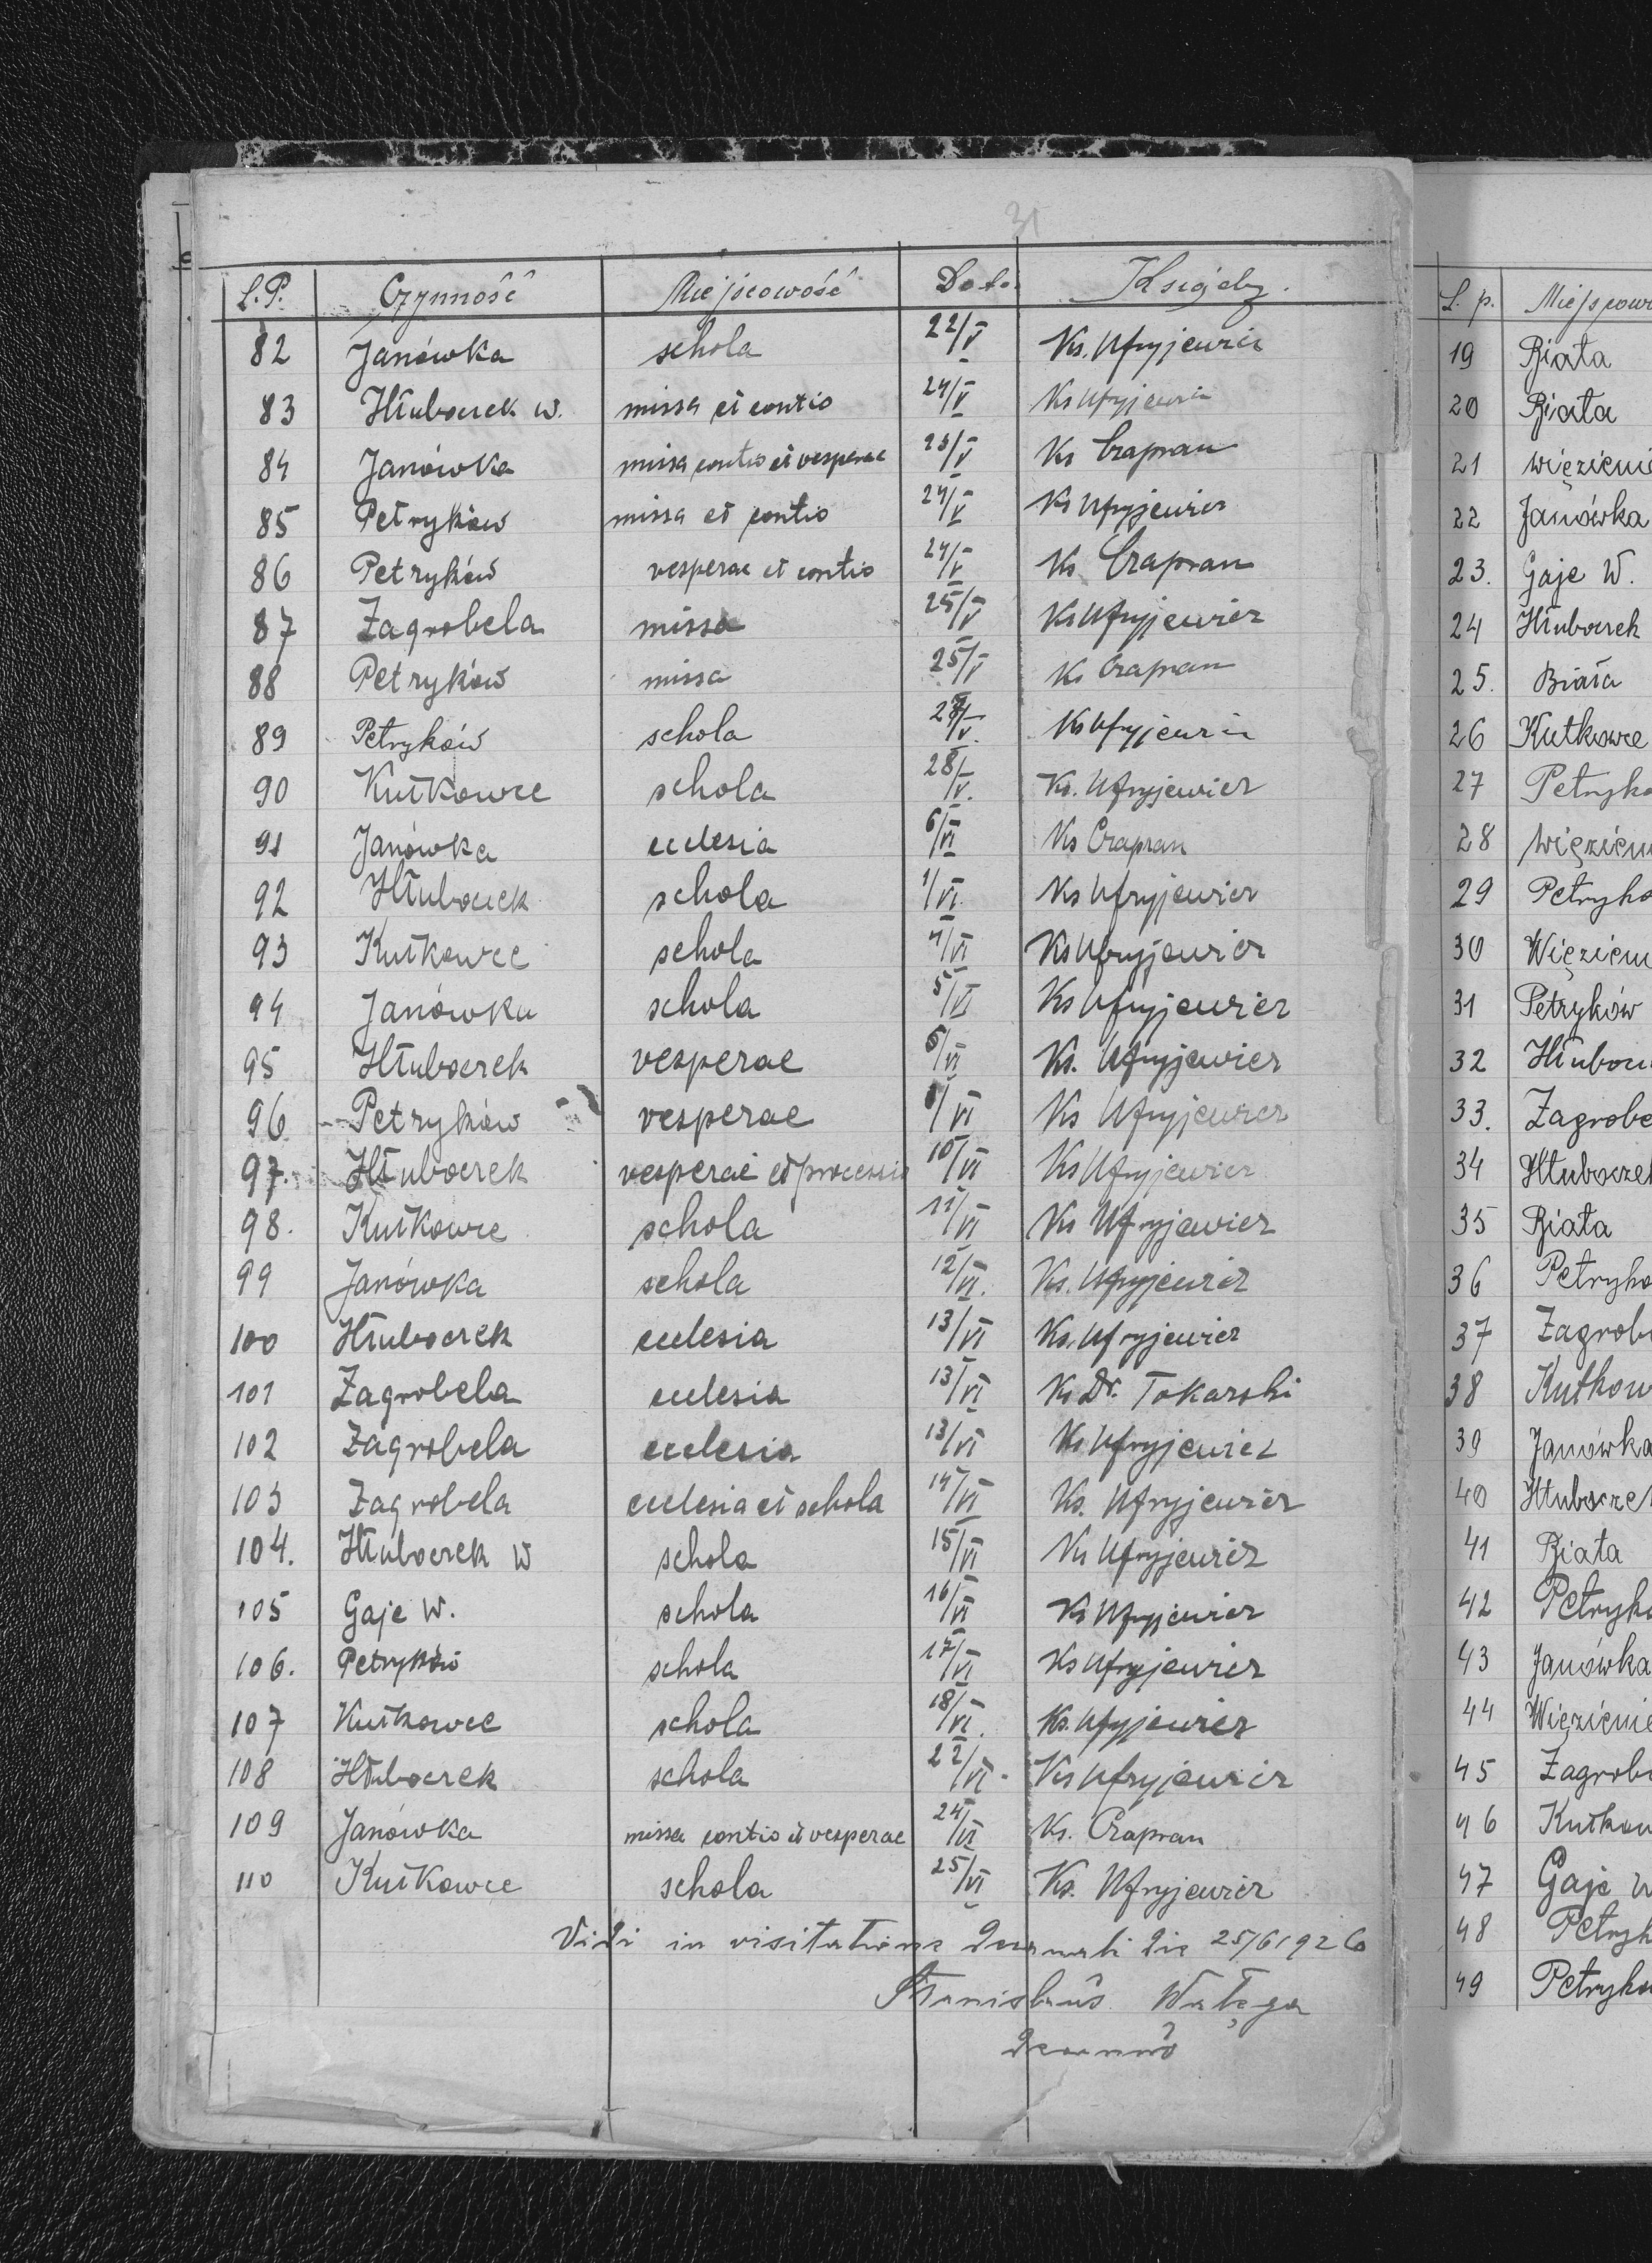 31
L.P. Czynność Miejscowość Data Księży.
82 Janówka schola 22/V Ks. Ufryjewicz
83 Hłuboczek W. missa et contio 24/V Ks Ufryjewicz
84 Janówka missa contio et vesperae 23/V Ks Czapran
85 Petryków missa et contio 24/V Ks Ufryjewicz
86 Petryków vesperae et contio 24/V Ks Czapran
87 Zagrobela missa 25/V Ks Ufryjewicz
88 Petryków missa 25/V Ks Czapran
89 Petryków schola Ks Ufryjewicz
90 Kutkowce schola 28/V. Ks. Ufryjewicz
91 Janówka ecclesia 6/VI Ks Czapran
92 Hłuboczek schola 1/VI. Ks Ufryjewicz
93 Kutkowce schola 4/VI Ks Ufryjewicz
94 Janówka schola 5/VI Ks Ufryjewicz
95 Hłuboczek vesperae 6/VI Ks. Ufryjewicz
96 Petryków vesperae /VI Ks Ufryjewicz
97. Hłuboczek vesperae et processio 10/VI Ks Ufryjewicz
98. Kutkowce schola 11/VI Ks Ufryjewicz
99 Janówka schola 12/VI. Ks. Ufryjewicz
100 Hłuboczek ecclesia 13/VI Ks. Ufryjewicz
101 Zagrobela ecclesia 13/VI Ks Dr. Tokarski
102 Zagrobela ecclesia 13/VI Ks Ufryjewicz
103 Zagrobela ecclesia et schola 14/VI Ks. Ufryjewicz
104. Hłuboczek W schola 15/VI Ks Ufryjewicz
105 Gaje W. schola 16/VI Ks Ufryjewicz
106. Petryków schola 17/VI Ks Ufryjewicz
107 Kutkowce schola 18/VI. Ks. Ufryjewicz
108 Hłuboczek schola 22/VI. Ks Ufryjewicz
109 Janówka missa contio et vesperae 24/VI Ks. Czapran
110 Kutkowce schola 25/VI Ks. Ufryjewicz
Vidi in visitatione decanali die 25/6 1926
Stanislaus Wałęga
decanus
L. p. Miejscow
19 Biała
20 Biała
21 więzieni
22 Janówka
23. Gaje W.
24 Hłuboczek
25. Biała
26 Kutkowce
27 Petryko
28 więzieni
29 Petryko
30 Więzieni
31 Petryków
32 Hłubocz
33. Zagrobe
34 Hłuboczek
35 Biała
36 Petryko
37 Zagrob
38 Kutkow
39 Janówka
40 Hłubocze
41 Biała
42 Petryk
43 Janówka
44 Więzienie
45 Zagrob
46 Kutkow
47 Gaje W
48 Petryk
49 Petryko